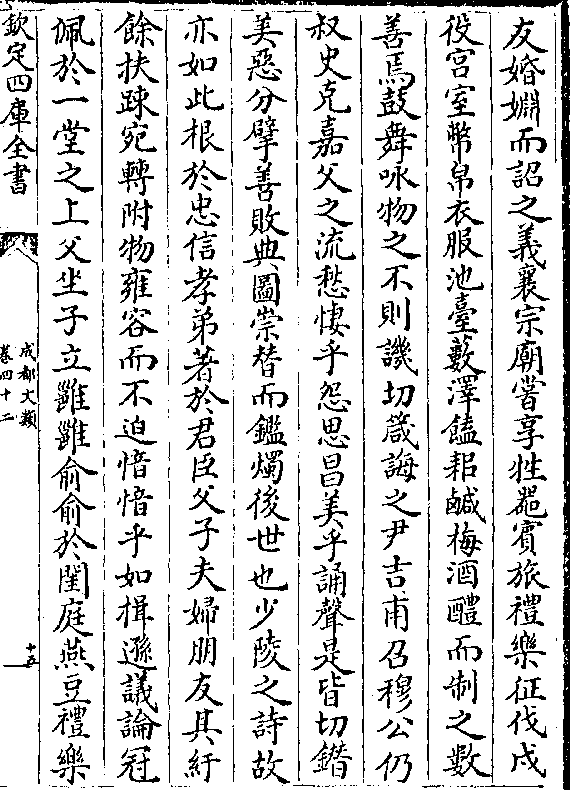 友婚姻而詔之義襄宗廟嘗享牲器賓旅禮樂征伐戍
役宮室幣帛衣服池臺藪澤饁耜鹹梅酒醴而制之數
善焉鼓舞咏物之不則譏切箴誨之尹吉甫召穆公仍
叔史克嘉父之流愁悽乎怨思昌美乎誦聲是皆切鍇
美惡分擘善敗典圖崇替而鑑燭後世也少陵之詩故
亦如此根於忠信孝弟著於君臣父子夫婦朋友其紆
餘扶踈宛轉附物雍容而不迫愔愔乎如揖遜議論冠
佩於一堂之上父坐子立雖雖俞俞於閨庭燕豆禮樂
欽定四庫全書
成都文類
卷四十二
十五